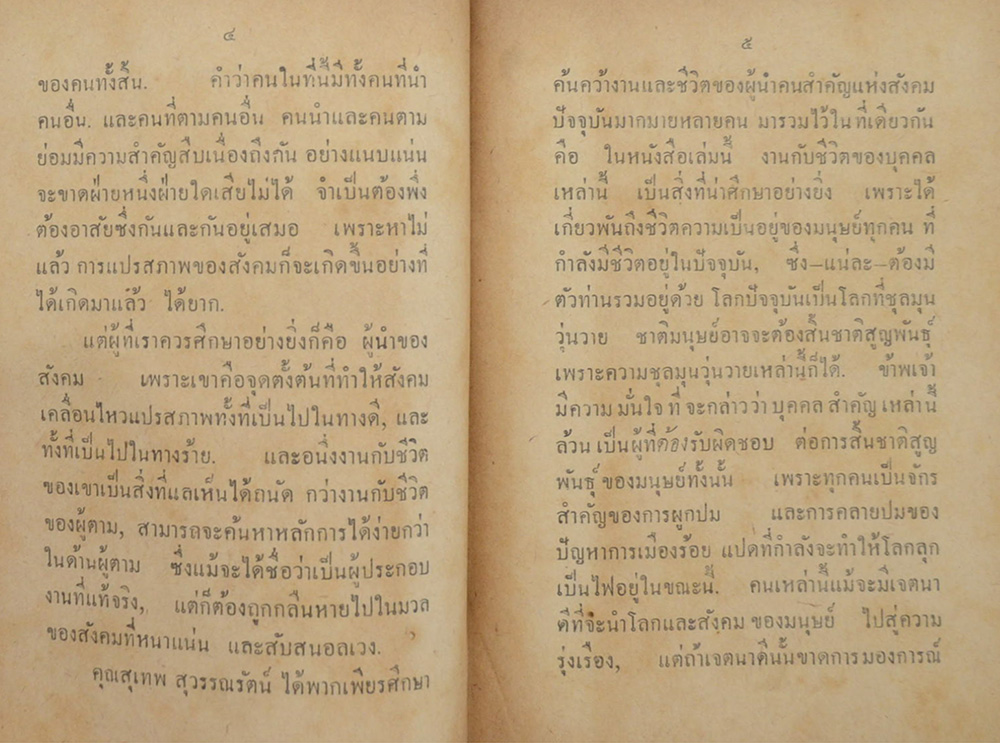 ๔
ของคนทั้งสิ้น. คำว่าคนในที่นี้มีทั้งคนที่นำ
คนอื่น. และคนที่ตามคนอื่น คนนำและคนตาม
ย่อมมีความสำคัญสืบเนื่องถึงกัน อย่างแนบแน่น
จะขาดฝ่ายหนึ่งฝ่ายใดเสียไม่ได้ จำเป็นต้องพึ่ง
ต้องอาสัยซึ่งกันและกันอยู่เสมอ เพราะหาไม่
แล้ว การแปรสภาพของสังคมก็จะเกิดขึ้นอย่างที่
ได้เกิดมาแล้ว ได้ยาก.
แต่ผู้ที่เราควรศึกษาอย่างยิ่งก็คือ ผู้นำของ
สังคม เพราะเขาคือจุดตั้งต้นที่ทำให้สังคม
เคลื่อนไหวแปรสภาพทั้งที่เป็นไปในทางดี, และ
ทั้งที่เป็นไปในทางร้าย. และอนึ่งงานกับชีวิต
ของเขาเป็นสิ่งที่แลเห็นได้ถนัด กว่างานกับชีวิต
ของผู้ตาม, สามารถจะค้นหาหลักการได้ง่ายกว่า
ในด้านผู้ตาม ซึ่งแม้จะได้ชื่อว่าเป็นผู้ประกอบ
งานที่แท้จริง, แต่ก็ต้องถูกกลืนหายไปในมวล
ของสังคมที่หนาแน่น และสับสนอลเวง.
คุณสุเทพ สุวรรณรัตน์ ได้พากเพียรศึกษา
๕
ค้นคว้างานและชีวิตของผู้นำคนสำคัญแห่งสังคม
ปัจจุบันมากมายหลายคน มารวมไว้ในที่เดียวกัน
คือ ในหนังสือเล่มนี้ งานกับชีวิตของบุคคล
เหล่านี้ เป็นสิ่งที่น่าศึกษาอย่างยิ่ง เพราะได้
เกี่ยวพันถึงชีวิตความเป็นอยู่ของมนุษย์ทุกคน ที่
กำลังมีชีวิตอยู่ในปัจจุบัน, ซึ่ง—แน่ละ—ต้องมี
ตัวท่านรวมอยู่ด้วย โลกปัจจุบันเป็นโลกที่ชุลมุน
วุ่นวาย ชาติมนุษย์อาจจะต้องสิ้นชาติสูญพันธุ์
เพราะความชุลมุนวุ่นวายเหล่านี้ก็ได้. ข้าพเจ้า
มีความ มั่นใจ ที่ จะกล่าวว่า บุคคล สำคัญ เหล่านี้
ล้วน เป็นผู้ที่ต้องรับผิดชอบ ต่อการสิ้นชาติสูญ
พันธุ์ ของมนุษย์ทั้งนั้น เพราะทุกคนเป็นจักร
สำคัญของการผูกปม และการคลายปมของ
ปัญหาการเมืองร้อย แปดที่กำลังจะทำให้โลกลุก
เป็นไฟอยู่ในขณะนี้. คนเหล่านี้แม้จะมีเจตนา
ดีที่จะนำโลกและสังคม ของมนุษย์ ไปสู่ความ
รุ่งเรือง, แต่ถ้าเจตนาดีนั้นขาดการ มองการณ์